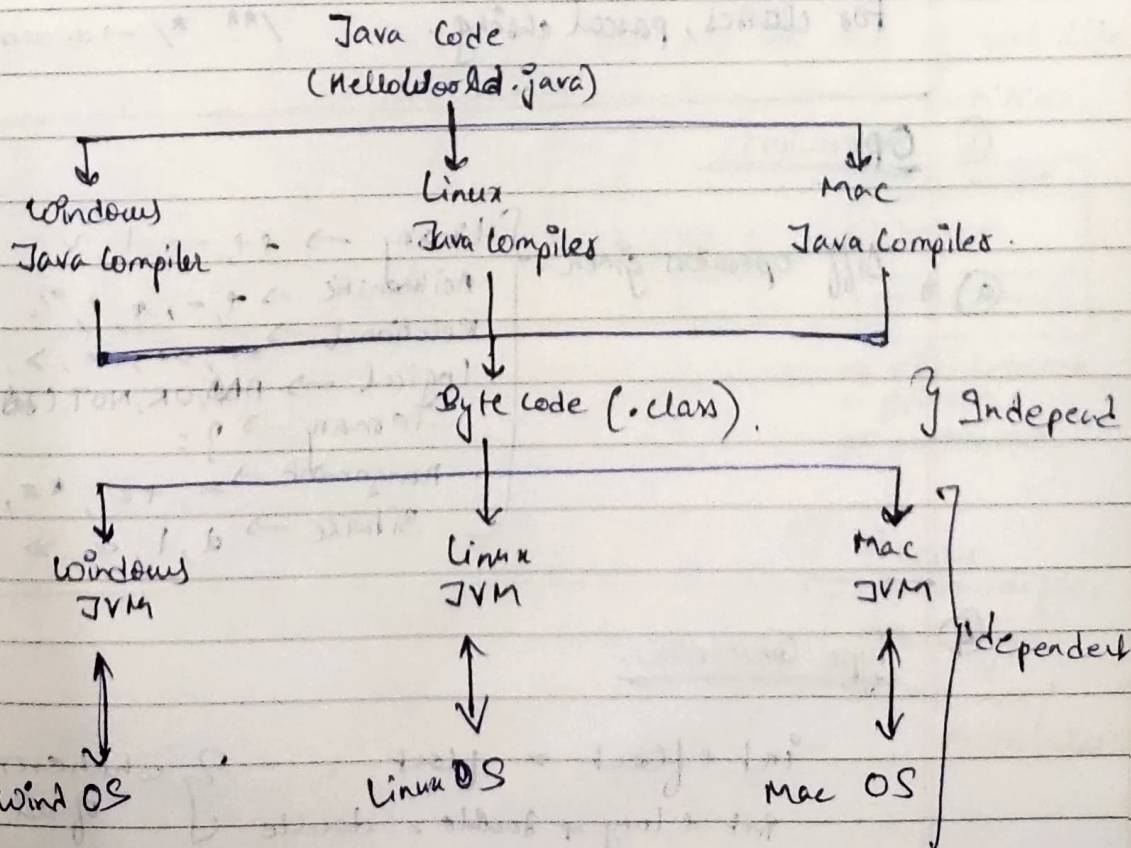 Java Code
(HelloWorld.java)
Windows
Java Compiler
Linux
Java Compiler
Mac
Java Compiler.
Byte Code (.class).
} Independ
Windows
JVM
Linux
JVM
Mac
JVM
dependent
Wind OS
Linux OS
Mac OS